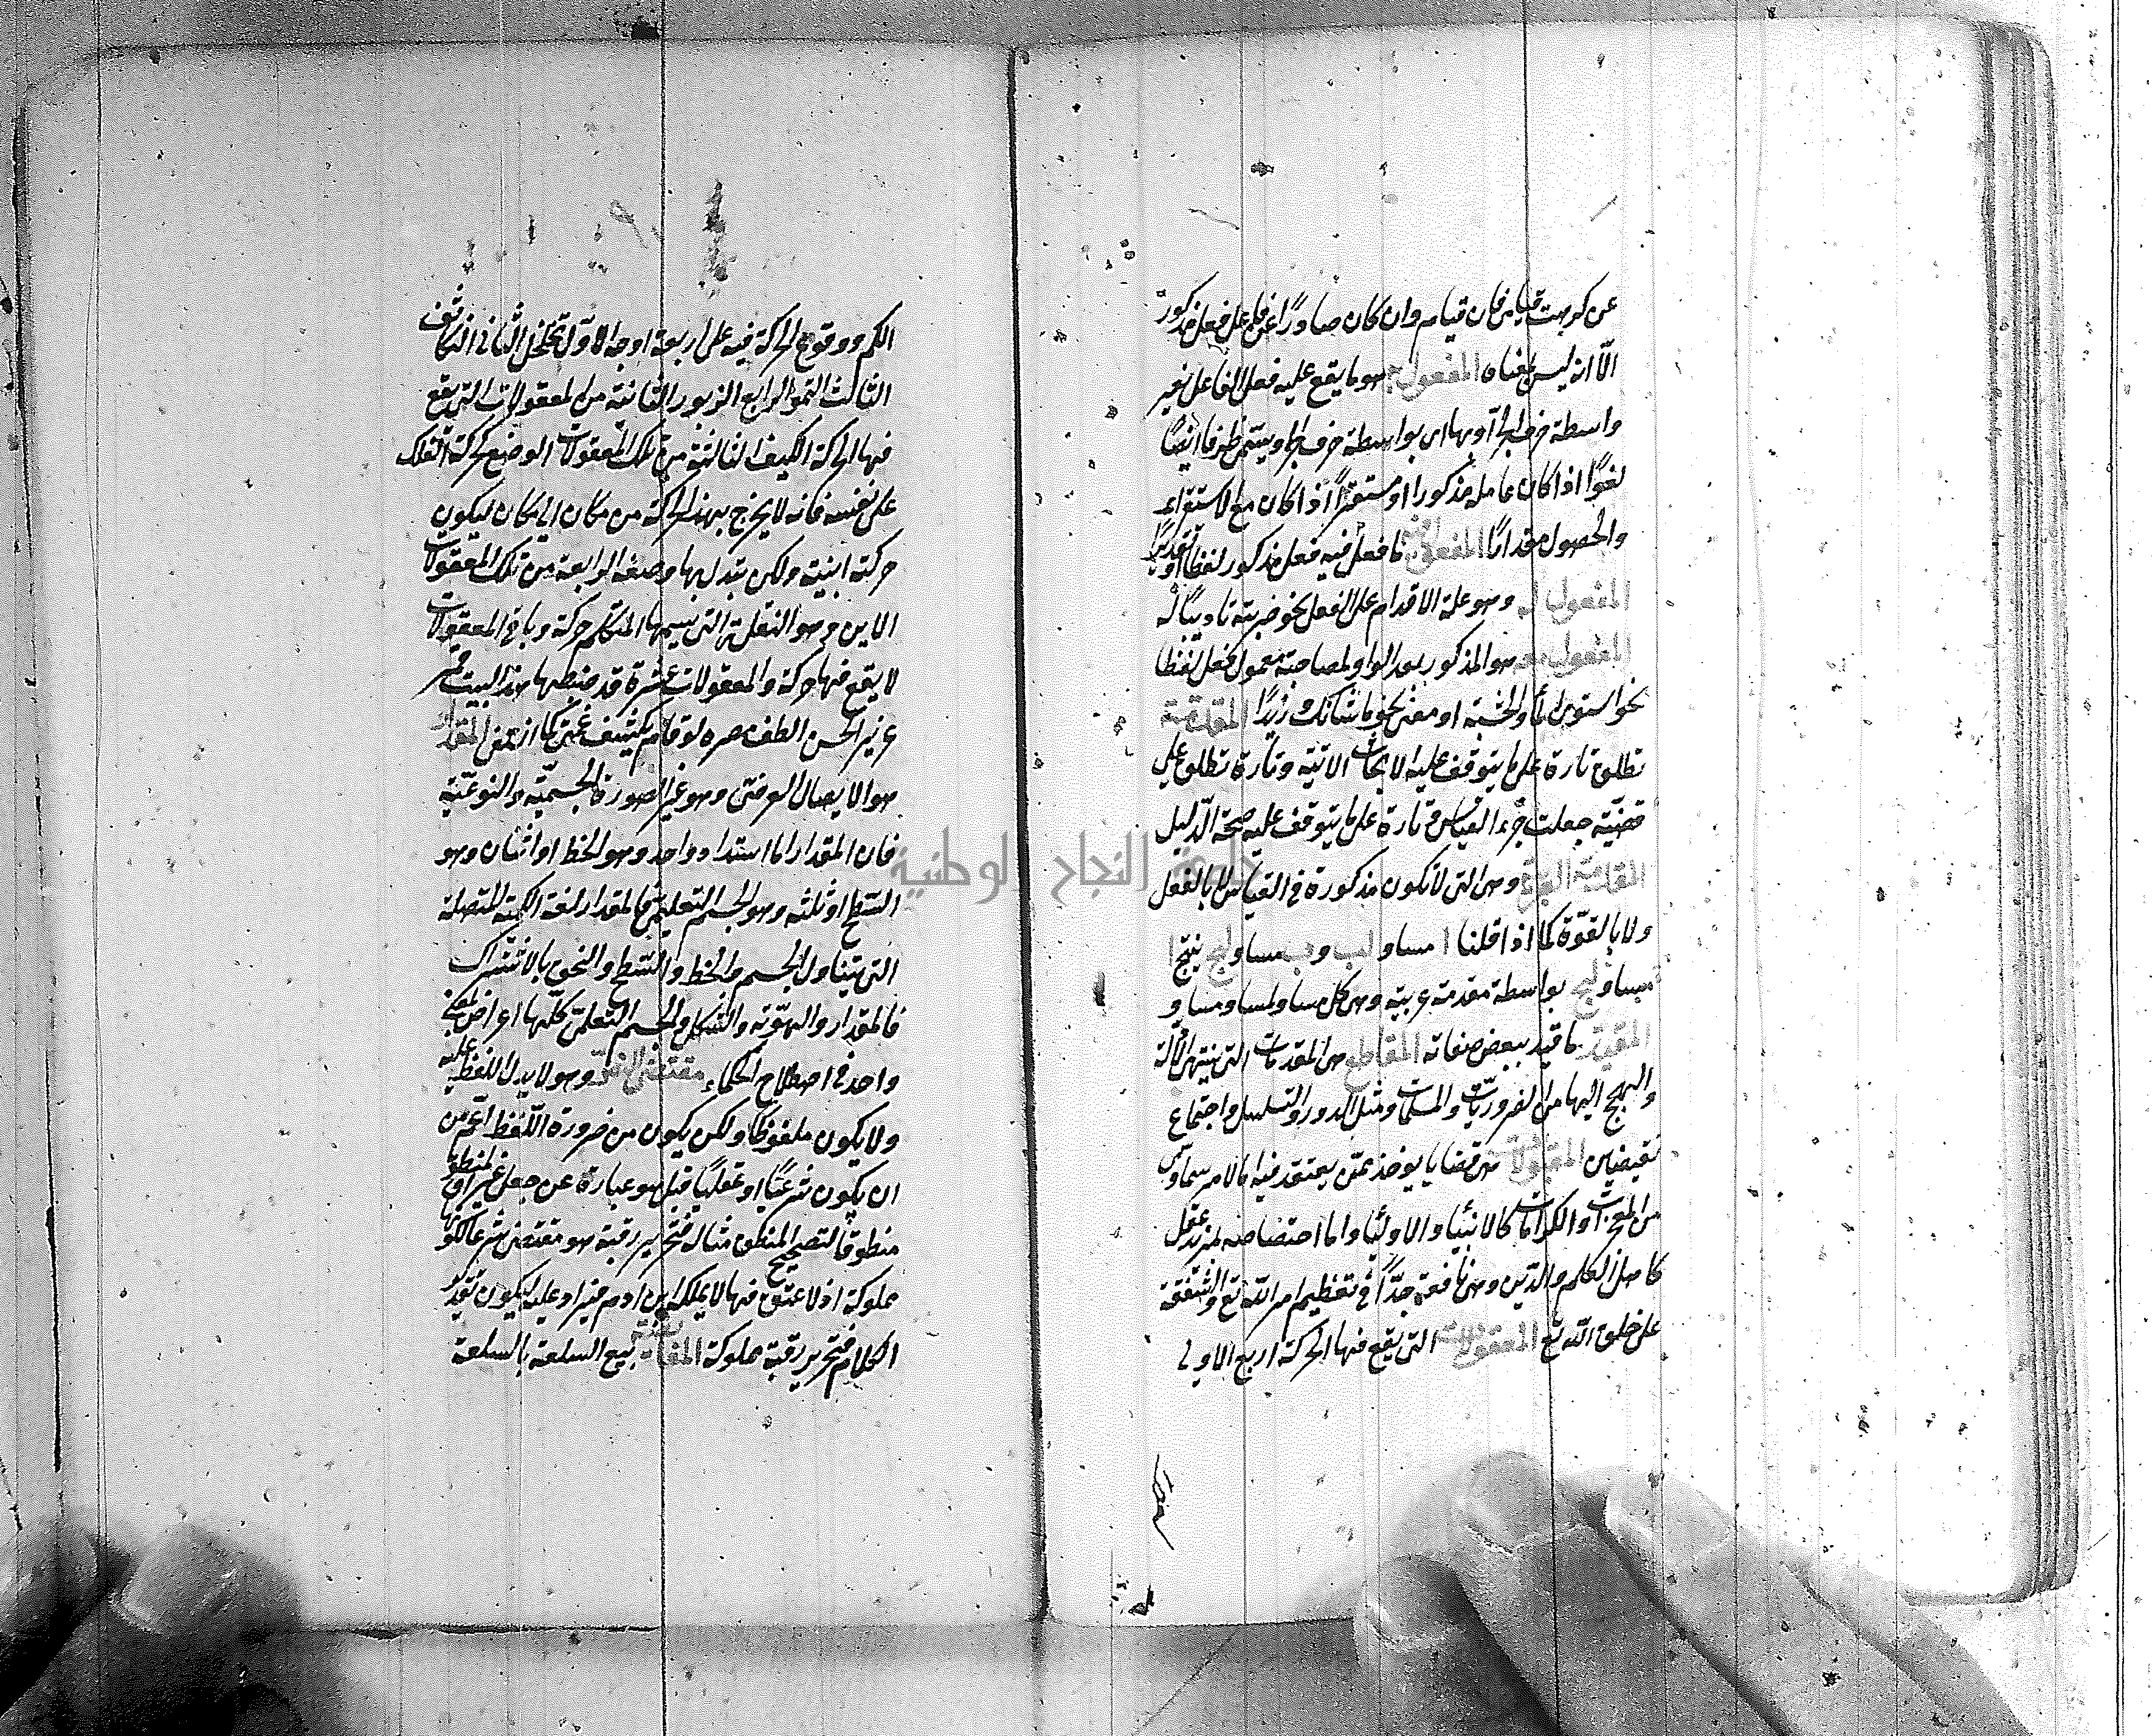 عن كرهت قيامى فان قيامى وان كان صادرًا عن فاعل فعل مذكور
الّا انه ليس بمعناه المفعول به هو ما يقع عليه فعل الفاعل بغير
واسطة حرف الجرّ او بها اى بواسطة حرف الجر ويسمى ظرفا ايضًا
لغوًا اذا كان عامله مذكورا او مستقرّاً اذا كان مع الاستقرار
والحصول مقدرًا المفعول فيه ما فعل فيه فعل مذكور لفظا او تقديرًا
المفعول له وهو علة الاقدام على الفعل نحو ضربته تاديبًا له
المفعول معه هو المذكور بعد الواو لمصاحبة معمول فعل لفظا
نحو استوى الماء والخشبة او معنى نحو ما شانك وزيدًا المقدمة
تطلق تارة على ما يتوقف عليه الابحاث الاتية وتارة تطلق على
قضيّة جعلت جزء القياس وتارة على ما يتوقف عليه صحة الدّليل
المقدمة الغريبة وهى التى لا تكون مذكورة فى القياس لا بالفعل
ولا بالقوّة كما اذا قلنا ا مساو لب وب مساو لج ينتج ا
مساو لج بواسطة مقدمة غريبة وهى كل مساو لمساو مساو
المقيد ما قيد ببعض صفاته المقاطع هى المقدمات التى ينتهى الادلّة
والحجج اليها من الضروريّات والمسلّمات ومثل الدور والتسلسل واجتماع
نقيضين المقبولات هى قضايا يوخذ ممّن يعتقد فيه اما لامر سماوىّ
من المعجزات والكرامات كالانبياء والاولياء واما اختصاصه لمزيد عقل
كاهل العلم والدّين وهى نافعة جدّاً فى تعظيم امر اللّه تع والشفقة
على خلق اللّه تع المقولات التى يقع فيها الحركة اربع الاولى
الكم ووقوع الحركة فيه على اربعة اوجه الاوّل تخلخل الثانى التكاثف
الثالث النمو الرابع الذبول الثانية من المعقولات التى يقع
فيها الحركة الكيف الثالثة من تلك المعقولات الوضع كحركة الفلك
على نفسه فانه لا يخرج بهذه الحركة من مكان الى مكان ليكون
حركته اينية ولكن يتبدل بها وضعه الرابعة من تلك المعقولات
الاين وهو النقلة التى يسميها المتكلم حركة وباقى المعقولات
لا يقع فيها حركة والمعقولات عشرة قد ضبطها هذا البيت قمر
عزيز الحسن الطف مصره لو قام يكشف غمتى لما انثنى المقدار
هو الاتصال العرضى وهو غير الصورة الجسميّة والنوعيّة
فان المقدار اما امتداد واحد وهو الخط او اثنان وهو
السّطح او ثلثه وهو الجسم التعليمى فالمقدار لغة الكمية المتصلة
التى يتناول الجسم والخط والسّطح والثخن بالاشتراك
فالمقدار والهويّة والشكل والجسم التعلمى كلّها اعراض بمعنى
واحد فى اصطلاح الحكماء مقتضى النصّ وهو لا يدل اللفظ عليه
ولا يكون ملفوظا ولكن يكون من ضرورة اللّفظ اعّم من
ان يكون شرعيًا او عقليًا قيل هو عبارة عن جعل غير المنطوق
منطوقا لتصحيح المنطوق مثاله فتحرير رقبة هو مقتضى شرعا لكونها
مملوكة اذ لا عتق فيها لا يملكه ابن ادم فيزاد عليه ليكون تقدير
الكلام فتحرير رقبة مملوكة المقايضة بيع السلعة بالسلعة
جامعة النجاح الوطنية